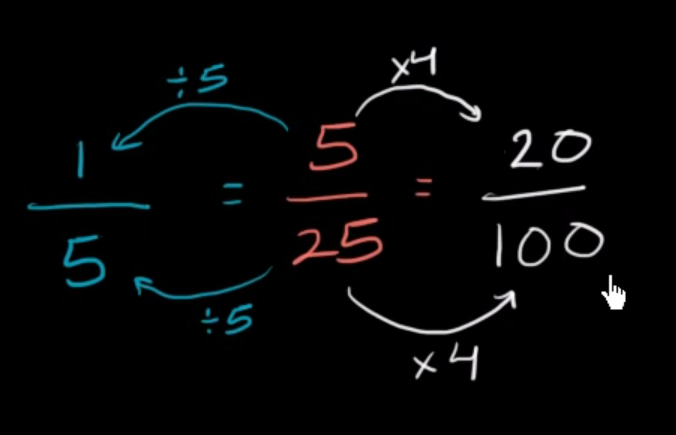 ÷5 ×4
1/5 = 5/25 = 20/100
÷5 ×4